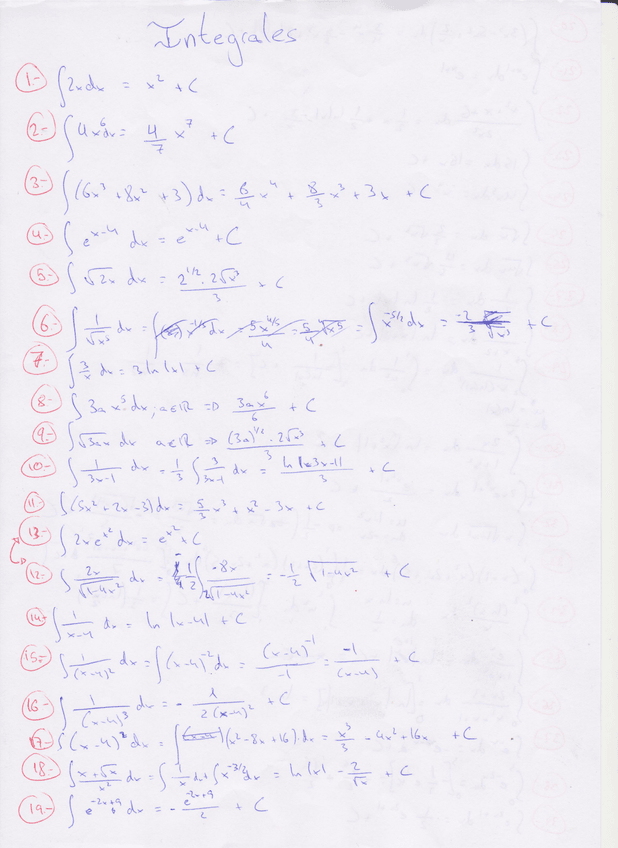 Integrales
1.- ∫2x dx = x² + C
2.- ∫4x⁶ dx = 4/7 x⁷ + C
3.- ∫(6x³ + 8x² + 3) dx = 6/4 x⁴ + 8/3 x³ + 3x + C
4.- ∫e^(x-4) dx = e^(x-4) + C
5.- ∫√2x dx = (2^(1/2) · 2√x³)/3 + C
6.- ∫1/√x⁵ dx = = ∫x^(-5/2) dx = -2/(3√x³) + C
7.- ∫3/x dx = 3 ln|x| + C
8.- ∫3ax⁵ dx; a∈ℝ ⇒ 3ax⁶/6 + C
9.- ∫√3ax dx a∈ℝ ⇒ ((3a)^(1/2) · 2√x³)/3 + C
10.- ∫1/(3x-1) dx = 1/3 ∫3/(3x-1) dx = ln|3x-1|/3 + C
11.- ∫(5x² + 2x - 3) dx = 5/3 x³ + x² - 3x + C
13.- ∫2x e^(x²) dx = e^(x²) + C
12.- ∫2x/√(1-4x²) dx = -1/2 ∫-8x/(2√(1-4x²)) = -1/2 √(1-4x²) + C
14.- ∫1/(x-4) dx = ln|x-4| + C
15.- ∫1/(x-4)² dx = ∫(x-4)⁻² dx = (x-4)⁻¹/-1 = -1/(x-4) + C
16.- ∫1/(x-4)³ dx = -1/(2(x-4)²) + C
17.- ∫(x-4)² dx = ∫(x² - 8x + 16) dx = x³/3 - 4x² + 16x + C
18.- ∫(x+√x)/x² dx = ∫1/x dx + ∫x^(-3/2) dx = ln|x| - 2/√x + C
19.- ∫e^(-2x+9) dx = -e^(-2x+9)/2 + C